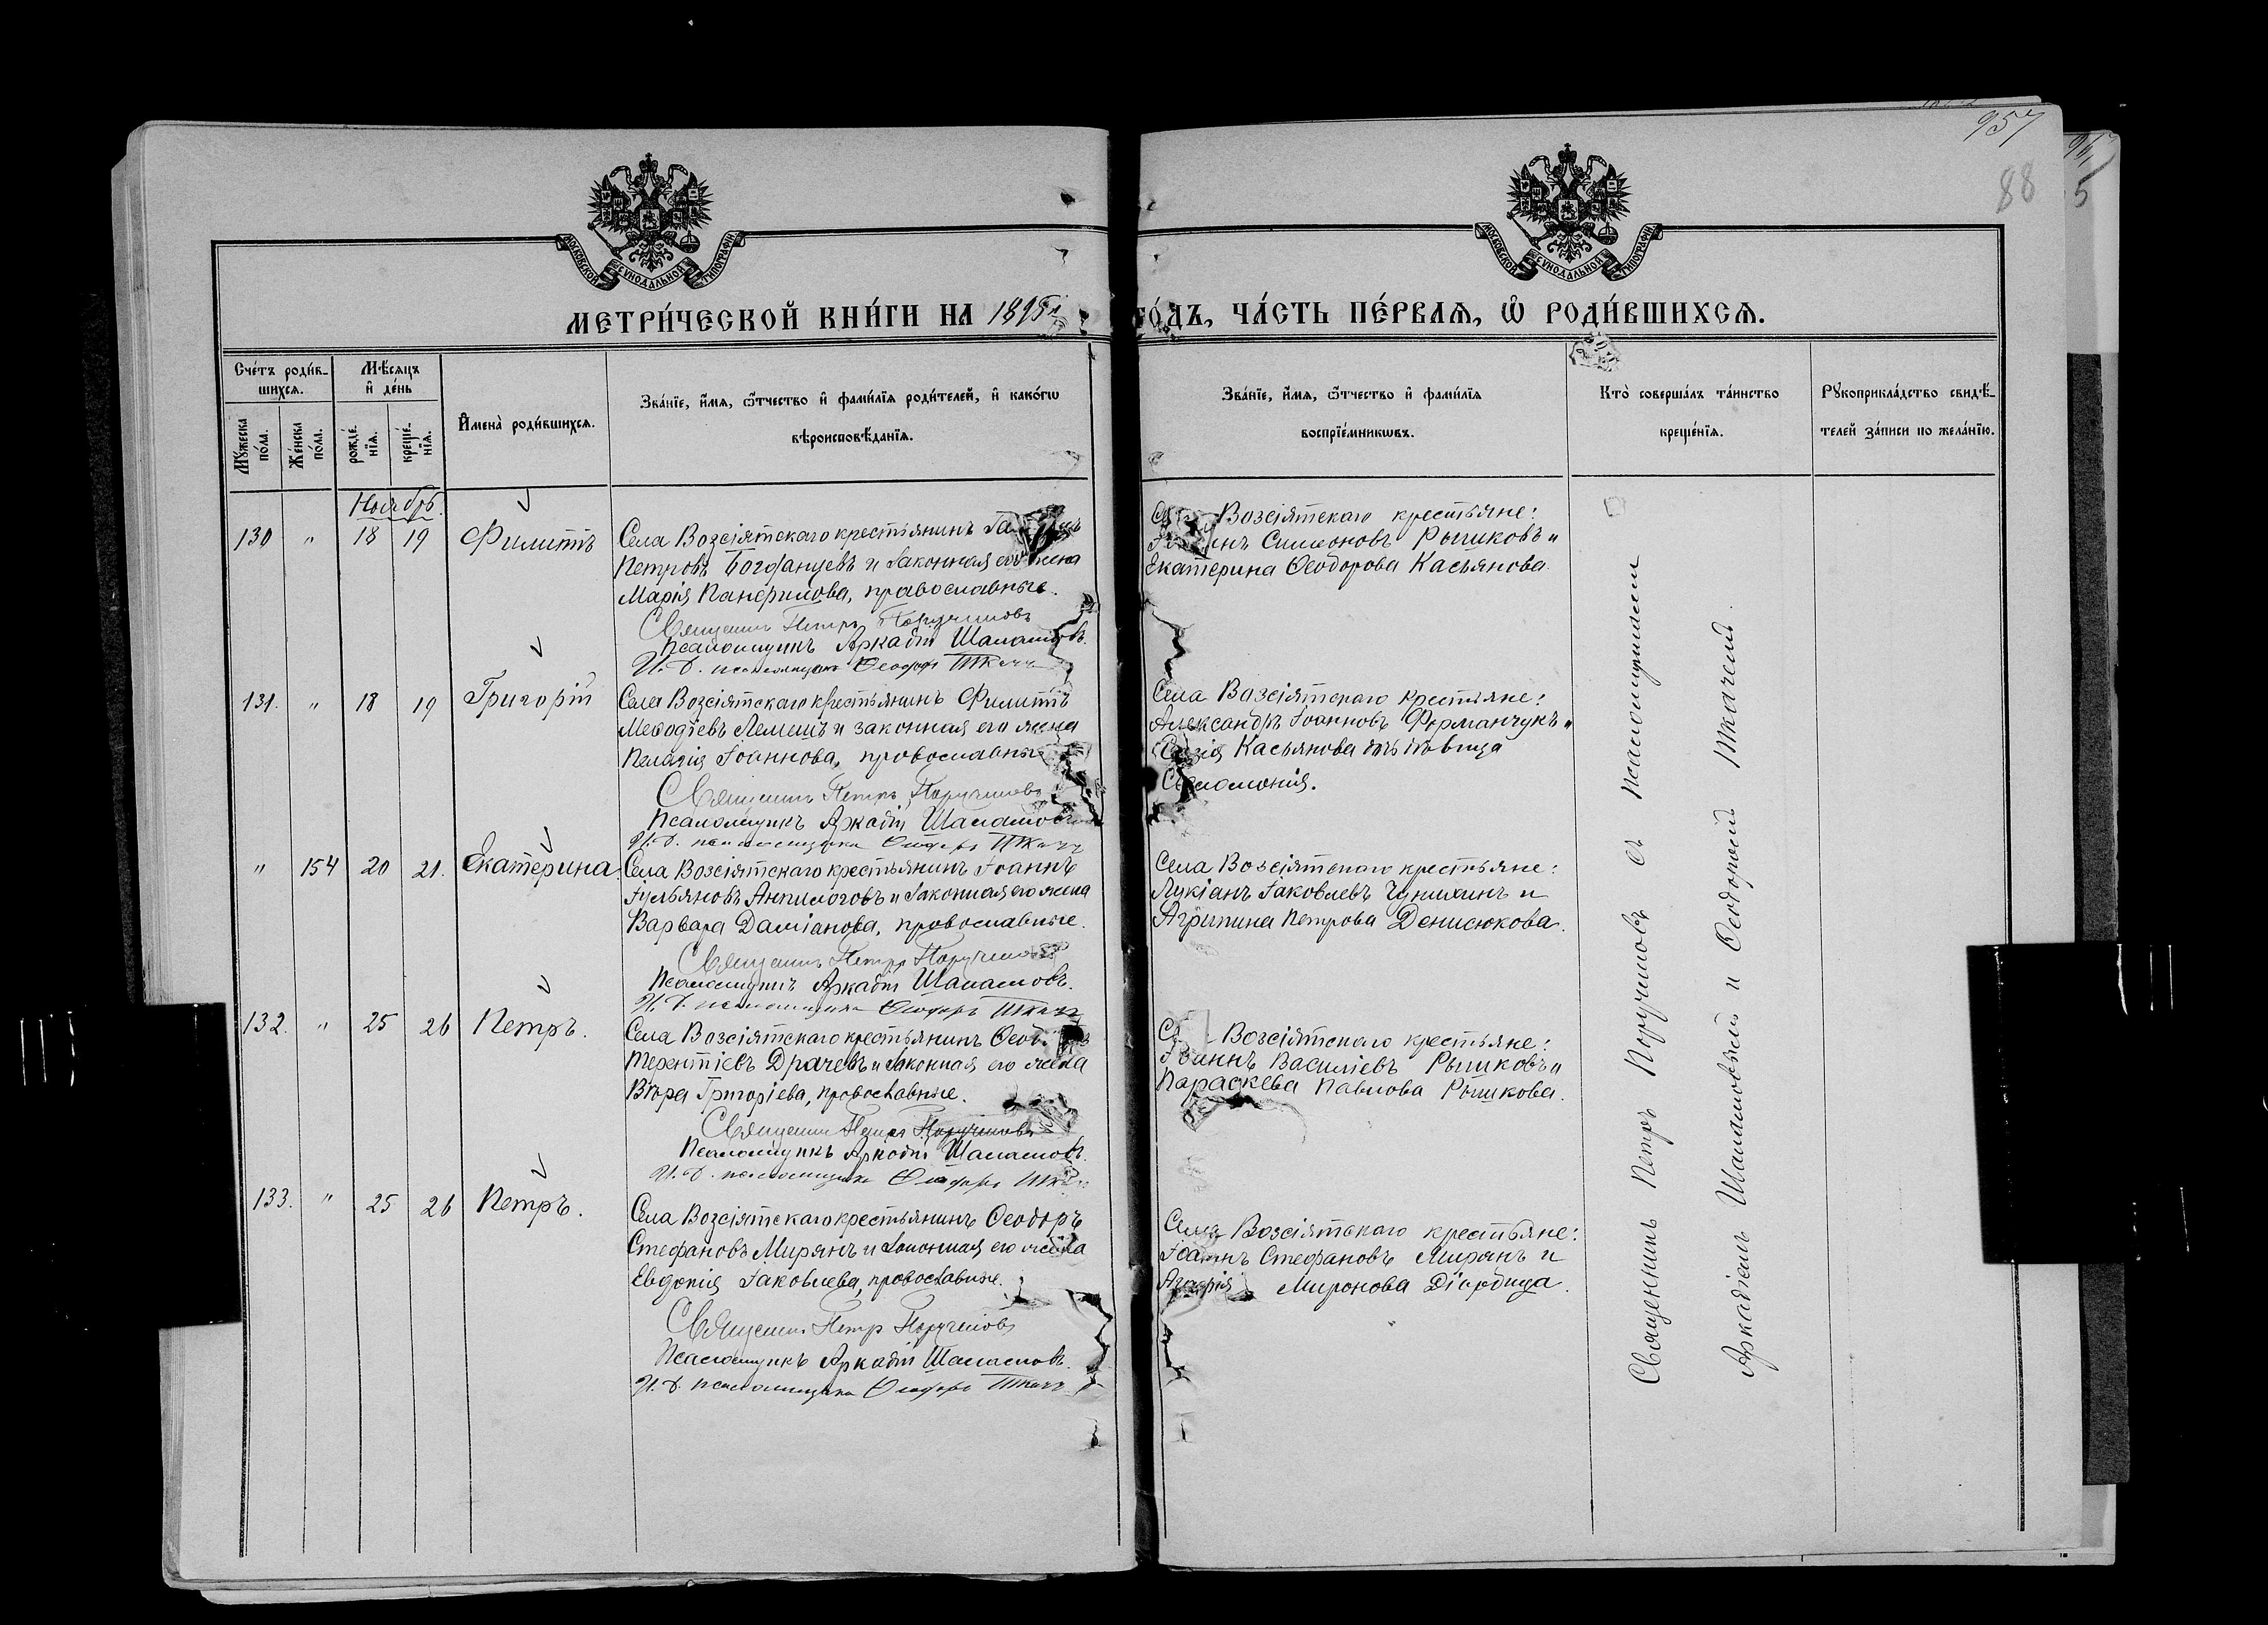 957
88
5
МОСКОВСКОЙ СУНОДАЛЬНОЙ ТИПОГРАФІИ
МОСКОВСКОЙ СУНОДАЛЬНОЙ ТИПОГРАФІИ
МЕТРИ́ЧЕСКОЙ КНИ́ГИ НА 1895 г. ГО́ДЪ, ЧА́СТЬ ПЕ́РВАѦ, Ѿ РОДИ́ВШИХСѦ.
Сче́тъ роди́в-
шихсѧ.
Мѣ́сѧцъ
и҆ де́нь
Мꙋ́жеска по́ла.
Же́нска по́ла.
рожде́-
нїѧ.
креще́-
нїѧ.
И҆мена̀ роди́вшихсѧ.
Зва́нїе, и҆́мѧ, ѻ҆́тчество и҆ фами́лїѧ роди́телей, и҆ како́гѡ
вѣроисповѣ́данїѧ.
Зва́нїе, и҆́мѧ, ѻ҆́тчество и҆ фами́лїѧ
воспрїе́мникѡвъ.
Кто̀ соверша́лъ та́инство
креще́нїѧ.
Рꙋкоприкла́дство свидѣ́-
телей за́писи по жела́нїю.
Ноябрь.
130 " 18 19 Филиппъ
Села Возсіятскаго крестьянинъ
Петровъ Богданцевъ и законная его жена
Марія Панфилова, православные.
Священникъ Петръ Поручиновъ
Псаломщикъ Аркадій Шаламовъ.
И. д. псаломщика Ѳеодоръ Ткачъ
Возсіятскаго крестьяне:
Симеоновъ Рышковъ и
Екатерина Ѳеодорова Касьянова.
131. " 18 19 Григорій
Села Возсіятскаго крестьянинъ Филиппъ
Меѳодіевъ Лемешъ и законная его жена
Пелагія Іоаннова, православные
Священникъ Петръ Поручиновъ
Псаломщикъ Аркадій Шаламовъ
И. д. псаломщика Ѳеодоръ Ткачъ
Села Возсіятскаго крестьяне:
Александръ Іоанновъ Форманчукъ и
Касьянова дѣвица
Соломонія.
" 154 20 21. Екатерина.
Села Возсіятскаго крестьянинъ Іоаннъ
Іульяновъ Анпилоговъ и законная его жена
Варвара Даміанова, православные.
Священникъ Петръ Поручиновъ
Псаломщикъ Аркадій Шаламовъ.
И. д. псаломщика Ѳеодоръ Ткачъ
Села Возсіятскаго крестьяне:
Лукіанъ Іаковлевъ Чунихинъ и
Агрипина Петрова Денисюкова.
132. " 25 26 Петръ.
Села Возсіятскаго крестьянинъ
Терентіевъ Драчевъ и законная его жена
Вѣра Григоріева, православные.
Священникъ Петръ Поручиновъ
Псаломщикъ Аркадій Шаламовъ.
И. д. псаломщика Ѳеодоръ Ткачъ
Возсіятскаго крестьяне:
Іоаннъ Василіевъ Рышковъ и
Параскева Павлова Рышкова.
133. " 25 26 Петръ.
Села Возсіятскаго крестьянинъ Ѳеодоръ
Стефановъ Мирянъ и законная его жена
Евдокія Іаковлева, православные.
Священникъ Петръ Поручиновъ
Псаломщикъ Аркадій Шаламовъ.
И. д. псаломщика Ѳеодоръ Ткачъ
Села Возсіятскаго крестьяне:
Іоаннъ Стефановъ Мирянъ и
Миронова
Священникъ Петръ Поручиновъ съ псаломщиками
Аркадіемъ Шаламовымъ и Ѳеодоромъ Ткачемъ.